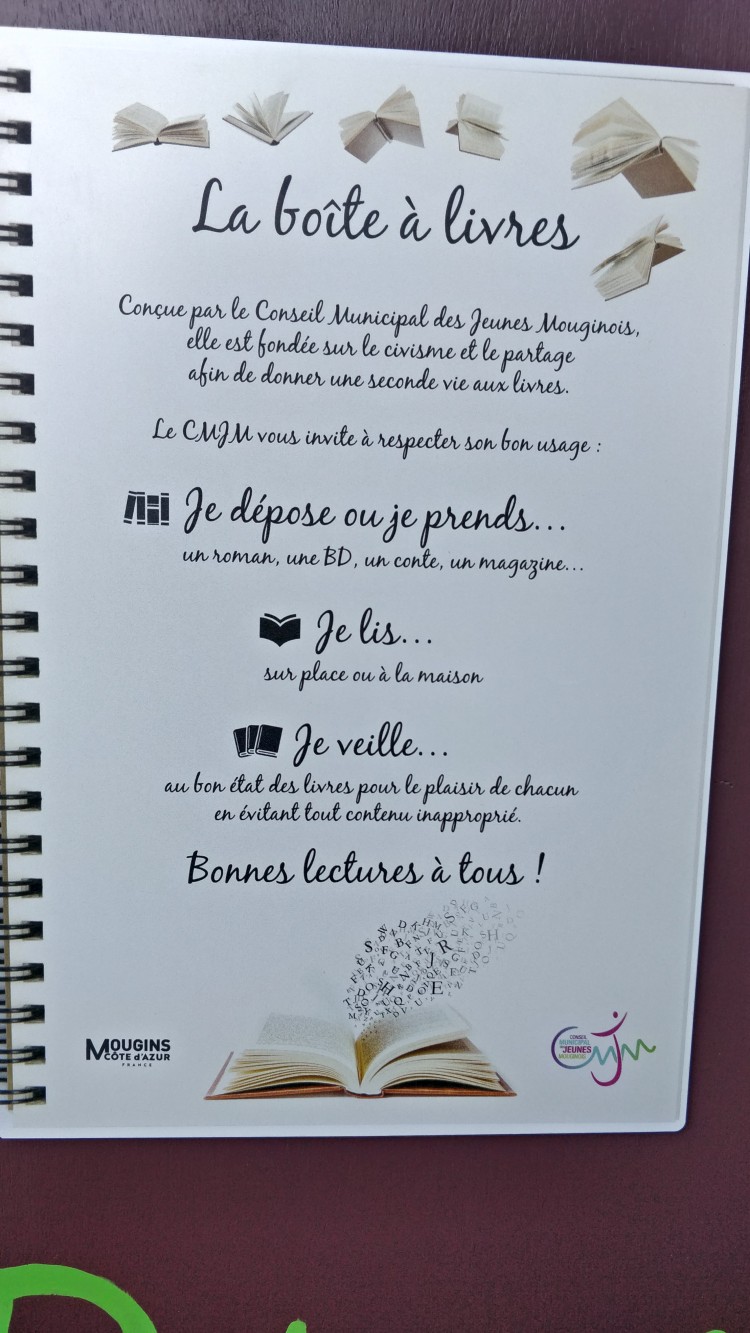 La boîte à livres
Conçue par le Conseil Municipal des Jeunes Mouginois,
elle est fondée sur le civisme et le partage
afin de donner une seconde vie aux livres.
Le CMJM vous invite à respecter son bon usage :
Je dépose ou je prends...
un roman, une BD, un conte, un magazine...
Je lis...
sur place ou à la maison
Je veille...
au bon état des livres pour le plaisir de chacun
en évitant tout contenu inapproprié.
Bonnes lectures à tous !
MOUGINS
CÔTE d'AZUR
FRANCE
CONSEIL
MUNICIPAL
des JEUNES
MOUGINOIS
CMJM